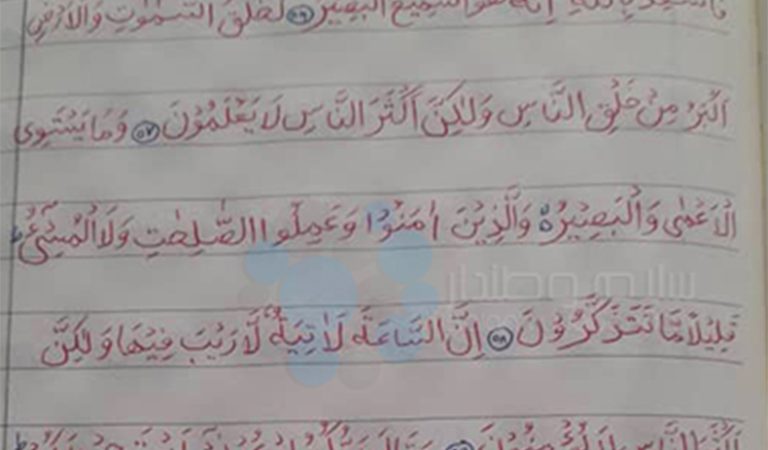 فاستعذ بالله إنه هو السميع البصير ﴿٥٦﴾ لخلق السموت والارض
اكبر من خلق الناس ولكن اكثر الناس لا يعلمون ﴿٥٧﴾ وما يستوى
الاعمى والبصير ۙ والذين امنوا وعملوا الصلحت ولا المسىء ؕ
قليلا ما تتذكرون ﴿٥٨﴾ ان الساعة لاتية لا ريب فيها ولكن
اكثر الناس لا يؤمنون
سلام وطندار